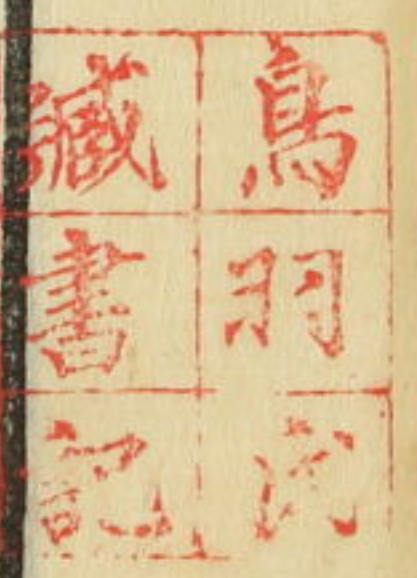 鳥羽
藏書記